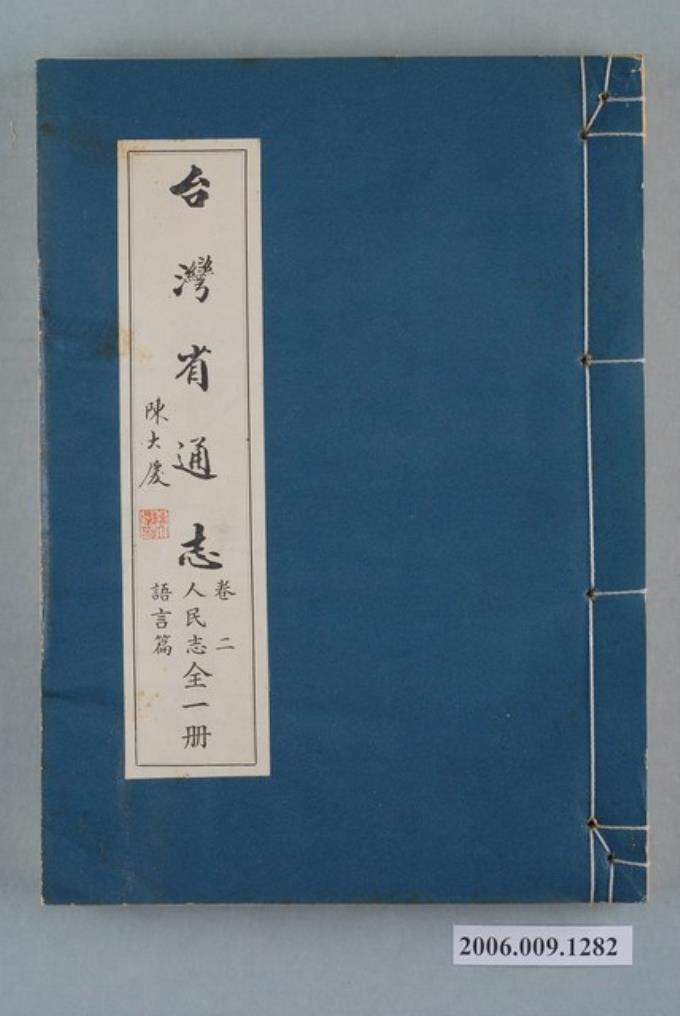 台灣省通志
卷二
人民志全一册
語言篇
陳大慶
2006.009.1282